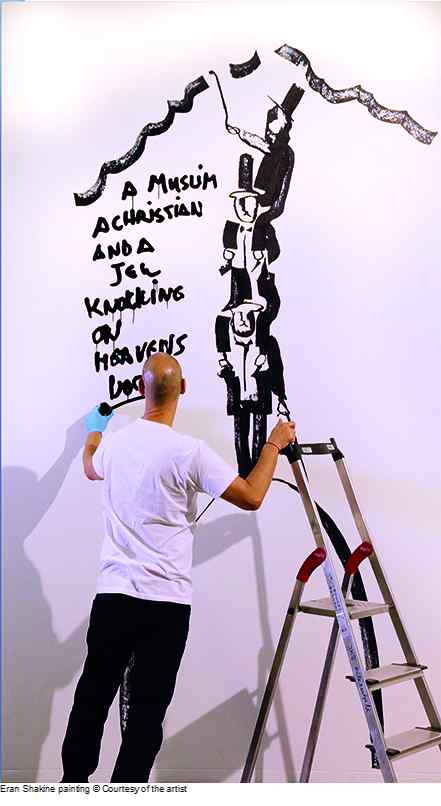 A MUSLIM
A CHRISTIAN
AND A
JEW
KNOCKING
ON
HEAVENS
Eran Shakine painting © Courtesy of the artist